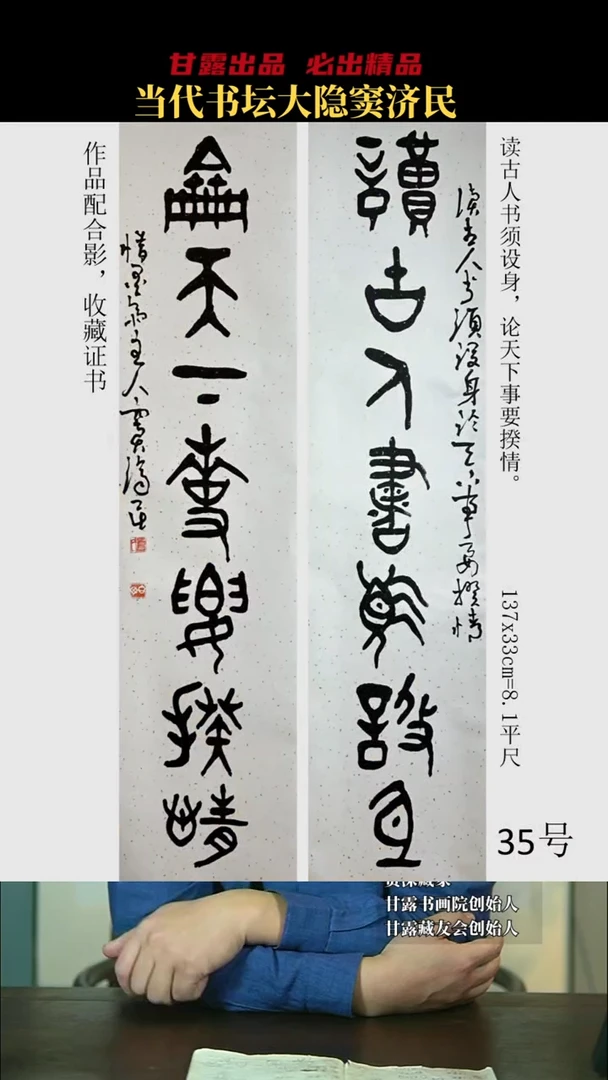 甘露出品 必出精品
当代书坛大隐窦济民
读古人书须设身，论天下事要揆情。
137x33cm=8.1平尺
讀古人書須設身
侖天下事要揆情
读古人书须设身论天下事要揆情
惜墨斋主人窦济民
作品配合影，收藏证书
35号
资深藏家
甘露书画院创始人
甘露藏友会创始人